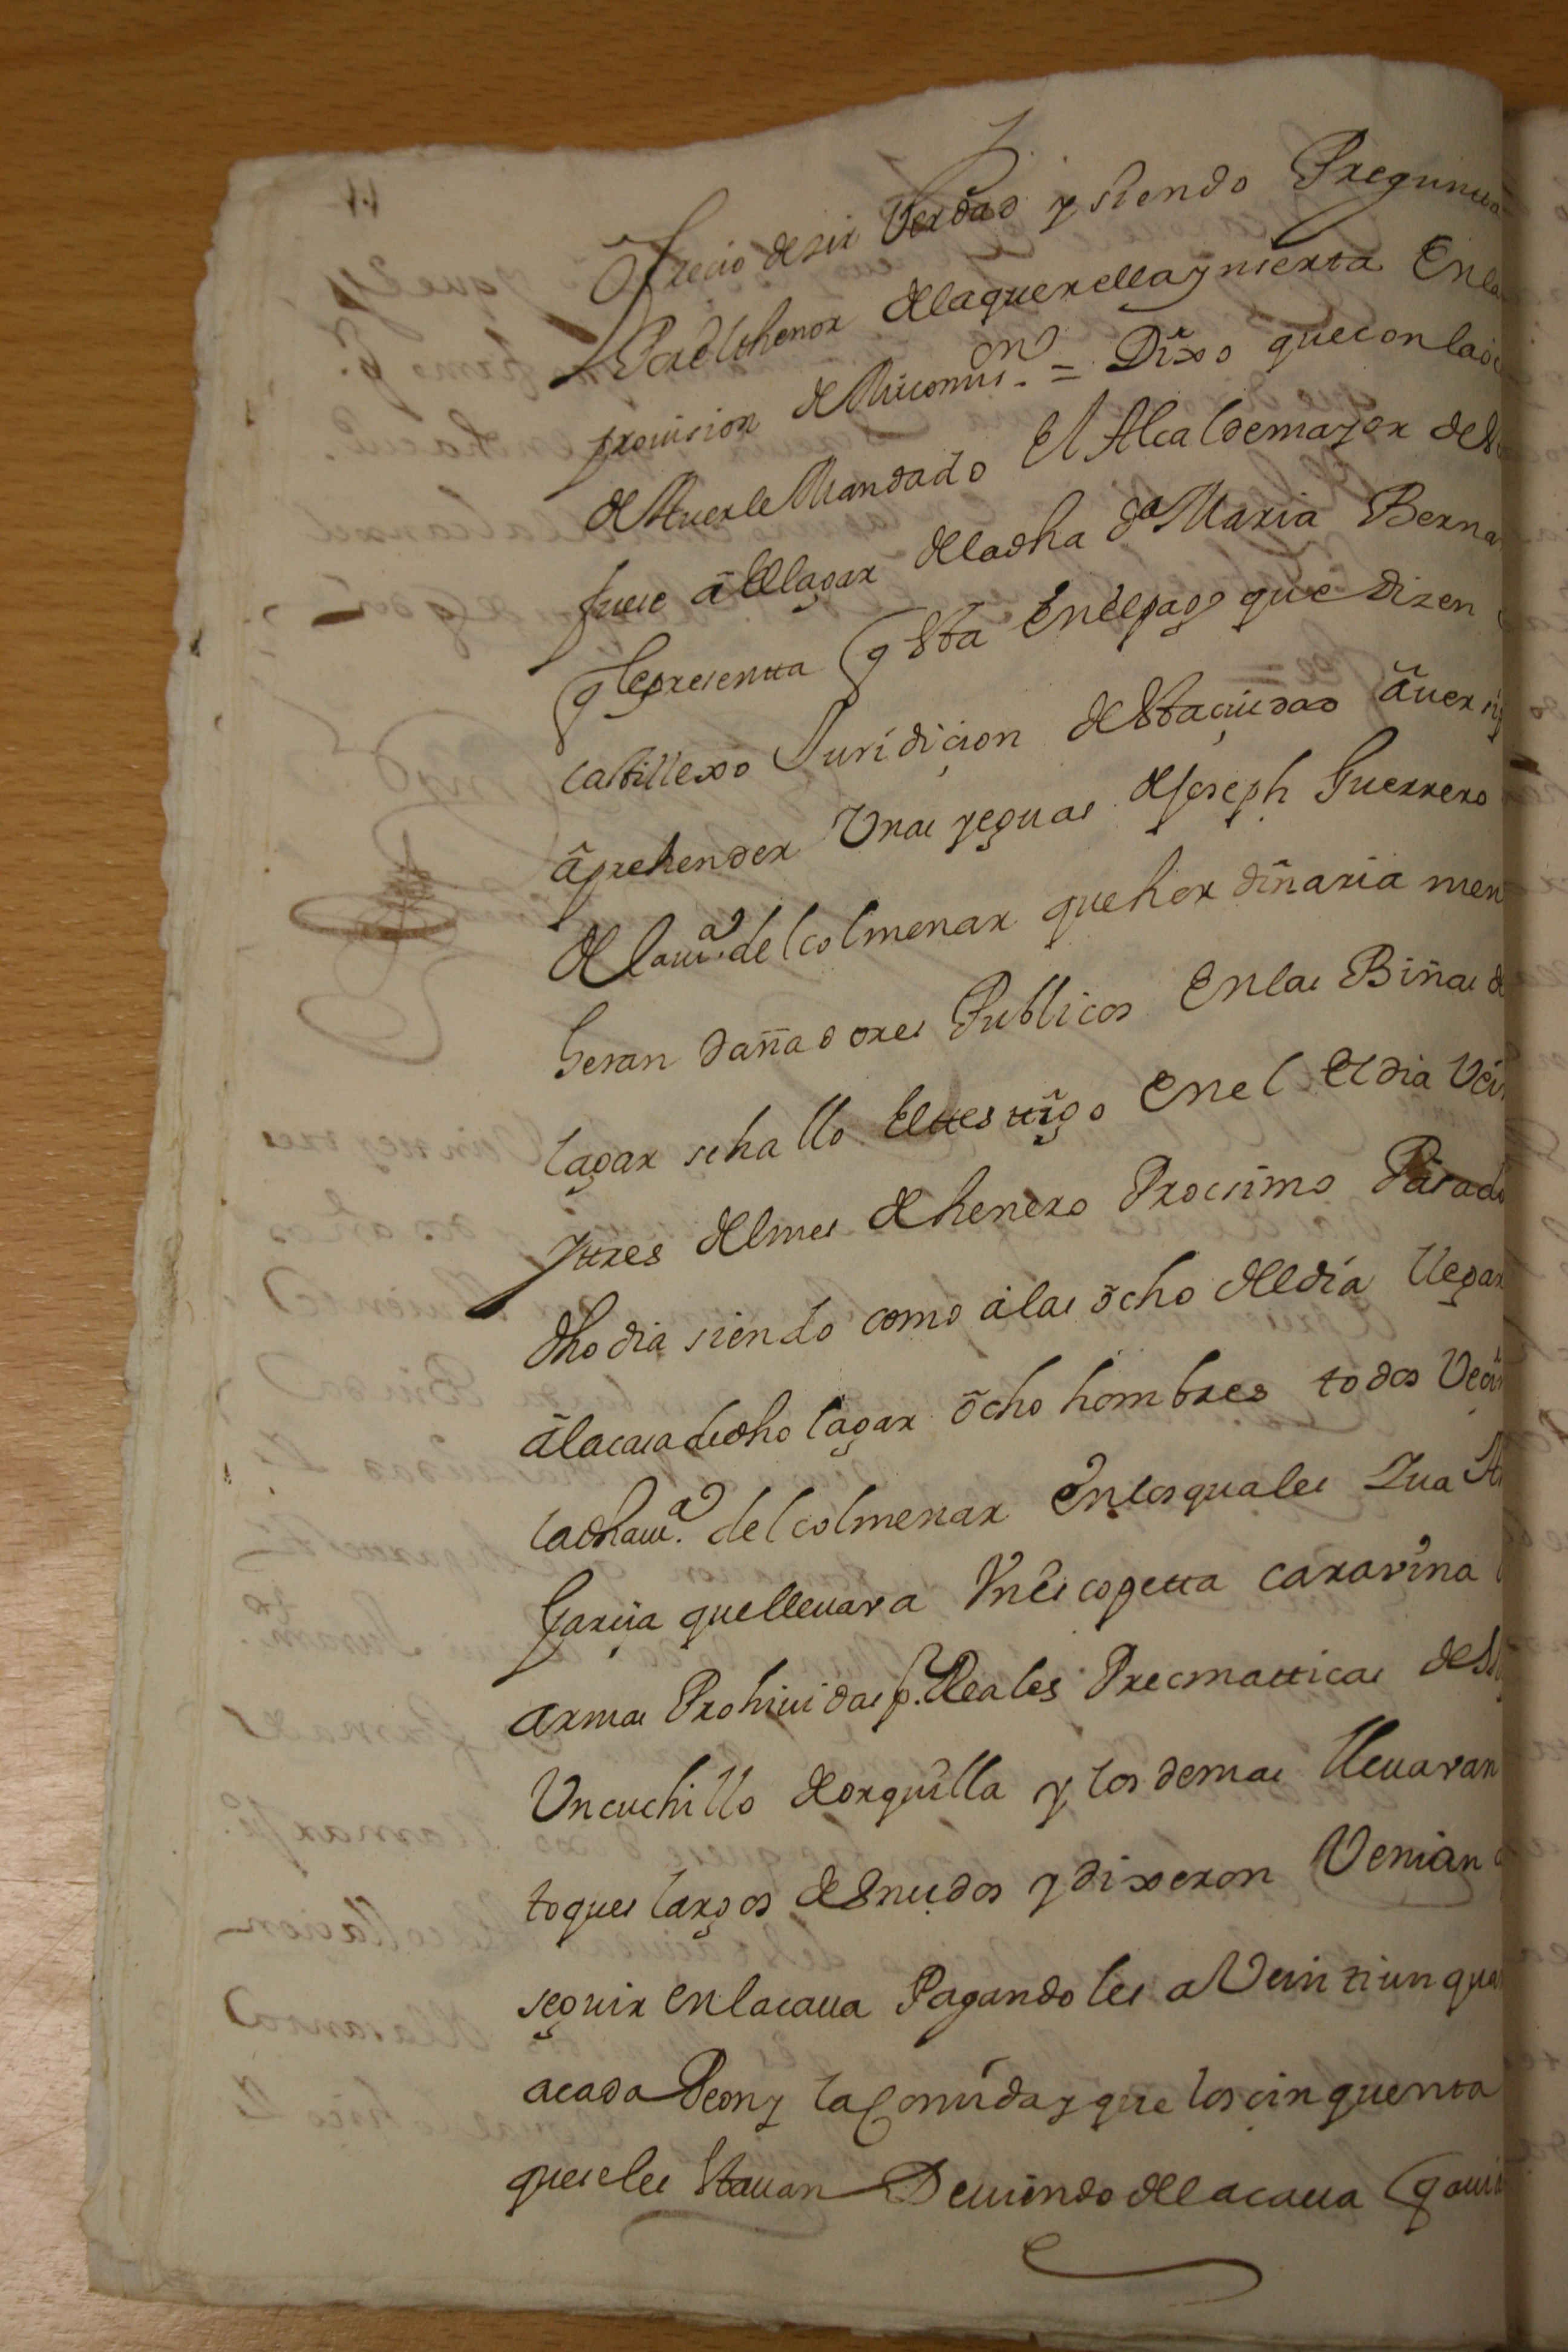 ofrecio desir Verdad y siendo Preguntta
Por el thenor de la querella ynserta En la
provision de Mi comi.on = Dixo que con la
de Averle Mandado El Alcalde mayor desta
fuese a el lagar de la dha Da Maria Berna
q representta q esta En el pago que dizen
castillexo Juridicion desta ciudad a ver si
aprehender Unas yeguas de Joseph Guerrero
de la vi.a del colmenar que hordinaria men
heran dañadores Publicos En las Biñas de
lagar se hallo El testigo En el El dia Vein
y tres del mes de henero Procsimo Pasado
dho dia siendo como a las ocho del dia llegar
a la casa de dho lagar ocho hombres todos Veci
la dha vi.a del colmenar En los quales Jua
Garzia que llevava Un escopetta caravina
armas Prohividas p. Reales Precmatticas
Un cuchillo de orquilla y los demas llevavan
toques largos desnudos y dixeron Venian
seguir en la cava Pagandoles a Veintiun qua
a cada Peon y la Comida y que los cinquenta
que se les Estavan Deviendo de la cava q